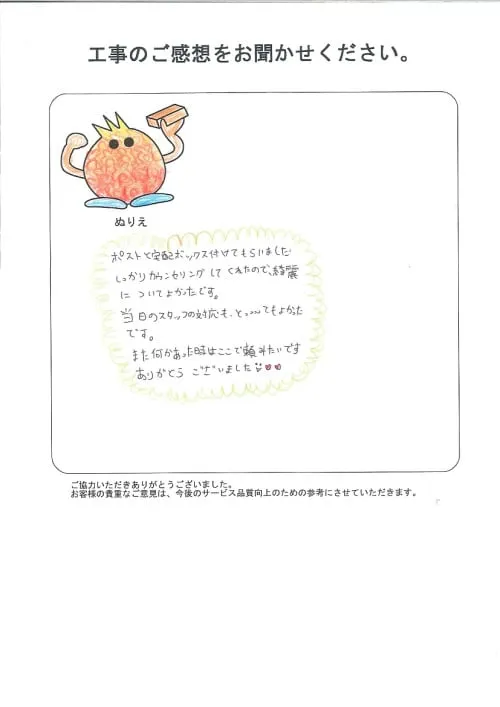 工事のご感想をお聞かせください。
ぬりえ
ポストと宅配ボックス付けてもらいました
しっかりカウンセリングしてくれたので、綺麗
に ついてよかったです。
当日のスタッフの対応も、とっっってもよかった
です。
また何かあった時はここで頼みたいです
ありがとう ございました
ご協力いただきありがとうございました。
お客様の貴重なご意見は、今後のサービス品質向上のための参考にさせていただきます。